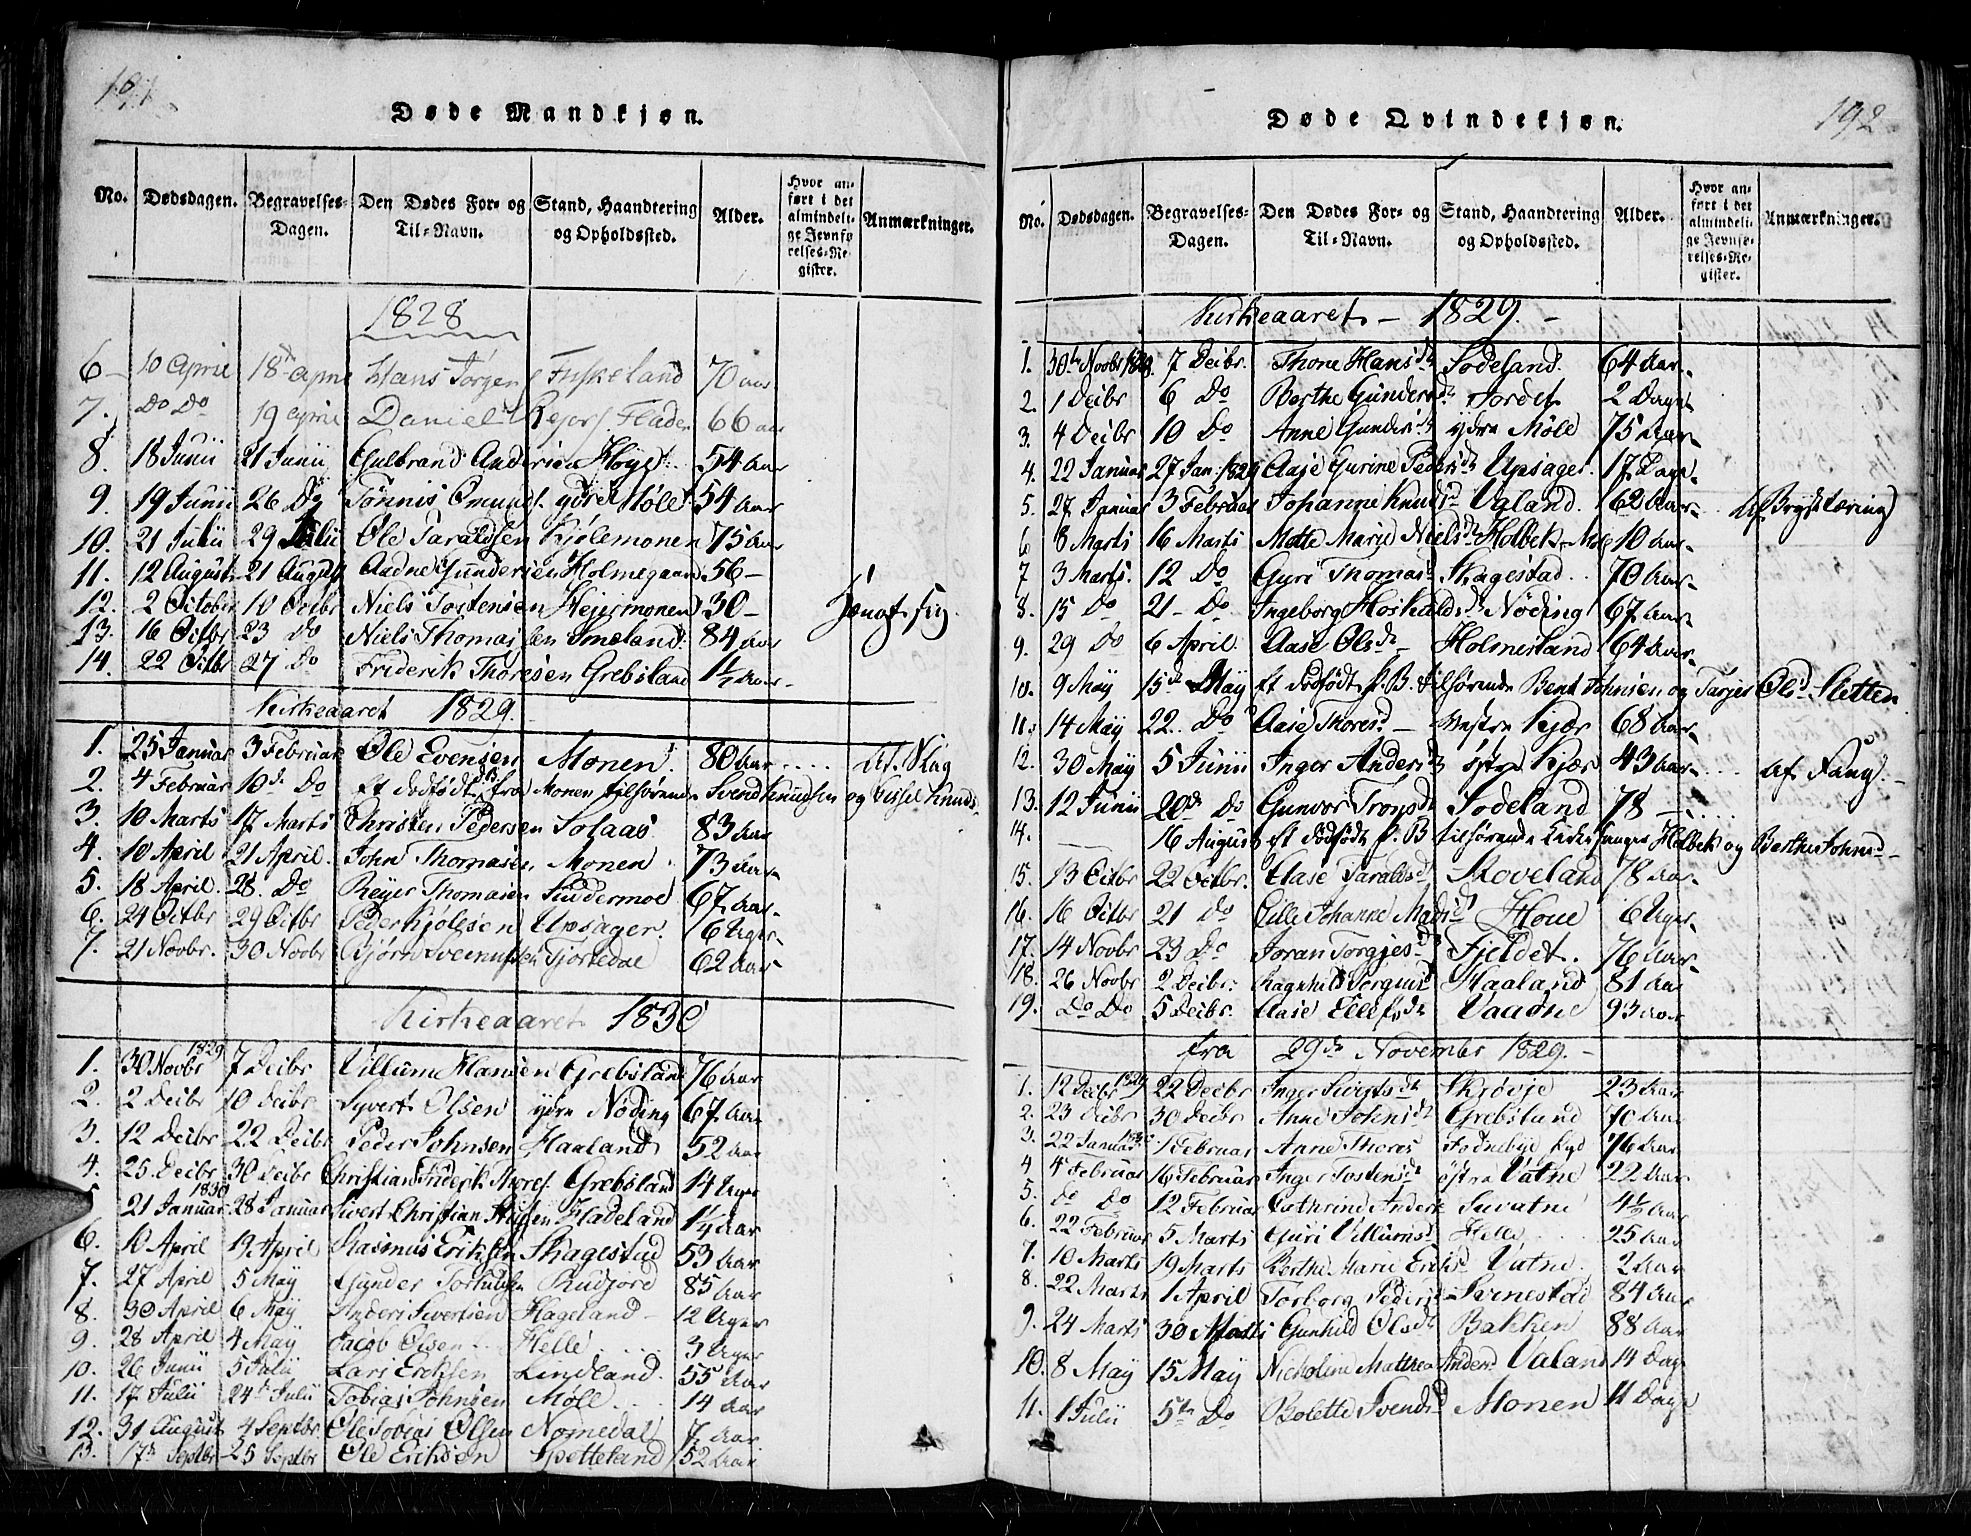 191
Døde Mandkjøn.
No. Dødsdagen. Begravelses-Dagen. Den Dødes For- og Til-Navn. Stand, Haandtering og Opholdssted. Alder. Hvor anført i det almindelige Jevnførelses-Register. Anmærkninger.
1828
6 10 April 18de April Hans Jörgens Fuskeland 70 aar
7. Do Do 19 April Daniel Fladen 66 aar
8. 18 Junii 21 Junii Gulbrand Andersen Höyer 54 Aar
9. 19 Junii 26 Do Tönnis Omunds. ydre Möll 54 Aar
10. 21 Julii 29 Julii Ole Taraldsen Kjölemonen 75 Aar
11. 12 August 21 August Aadne Gundersen Holmegaard 56 –
12. 2 Octobr 10 Octbr Niels Tostensen Hejermonen 30 – hængt sig.
13. 16 Octbr 23 Do Niels Thomassen Imeland 84 Aar
14. 22 Octbr 27 Do Friderik Thoresen Grebsland 1½ Aar
Kirkeaaret 1829.
1. 25 Januar 3 Februar Ole Evensen Monen. 80 Aar . . . . Af Slag
2. 4 Februar 10de Do Et dödfödt P.B. fra Monen tilhörende Svend Knudsen og Sissel Knuds.
3. 10 Marts 17 Marts Christen Pedersen Solaas 83 Aar
4. 10 April 21 April. John Thomasen Monen 73 Aar
5. 18 April. 28. Do Reyer Thomasen Suddermoe 67 Aar
6. 24 Octbr 29 Octbr Peder Kjölsen Upsager. 6 Uger
7. 21 Novbr. 30 Novbr Björn Svennungsen Fjortedal 62 Aar
Kirkeaaret 1830
1. 30 Novbr 1829 7 Decbr Villum Hansen Grebsland 76 Aar
2. 2 Decbr 10 Decbr Syvert Olsen ydre Nöding 67 Aar
3. 12 Decbr 22 Decbr Peder Johnsen Haaland 52 Aar
4. 25. Decbr 30 Decbr Christian Friderik Thores. Grebsland 14 Uger
5. 21 Januar 1830 28 Januar Sivert Christian Hladeland 1¼ Aar
6. 10 April 19 April Rasmus Eriksen Skagestad 53 Aar
7. 27 April 5 May Gunder Rudjord 85 Aar
8. 30 April 6 May Anders Sivertsen Hageland 12 Uger
9. 28 April 4 May Jacob Olsen Helle . . . . 3 Uger
10. 26 Junii 5 Julii Lars Eriksen Lindland. 55 Aar
11. 17 Julii 24de Julii Tobias Johnsen Möll . . . . 14 Aar
12. 31 August 4 Septbr. Ole Tobias Olsen Nomedal 7 Aar
13. 17de Septbr 25 Septbr Ole Eriksen Spetteland 52 Aar.
192
Døde Qvindekjøn.
No. Dødsdagen. Begravelses-Dagen. Den Dødes For- og Til-Navn. Stand, Haandtering og Opholdssted. Alder. Hvor anført i det almindelige Jevnførelses-Register. Anmærkninger.
Kirkeaaret – 1829. –
1. 30te Novbr 1828. 7 Decbr. Thore Hansdr Sodeland. 64 Aar
2. 1 Decbr 6 Do Berthe Gundersdr Jordet 2 Dage
3. 4 Decbr 10 Do Anne Gundersdr ydre Möll 75 Aar
4. 22 Januar 27 Jan: 1829 Aase Gurine Pedersdr Upsager. 17 Dage
5. 27 Januar 3 Februar Johanne Knudsd Valand. 62 Aar Af Brysttæring
6 8 Marts 16 Marts Mette Marie Nielsdr Holbek 10 Aar
7 3 Marts. 12 Do Guri Thomasd Skagestad . . 70 Aar
8. 15 Do 21 – Do Ingeborg Nöding 67 Aar
9. 29 Do 6 April. Aase Olsdr Holmesland 64 Aar
10. 9 May 15de May Et dödfödt P.B. tilhörende Bent Johnsen og Tarjer Olsd Sletten
11. 14 May 22. Do Aase Thoresd – Vestre Kjær 68 Aar
12. 30 May 5 Junii Inger Andersd östre Kjær 43 Aar . . . Af Fang. –
13. 12 Junii 20de Do Gunvor Tronsd Sodeland 78 – . . . .
14. 16 August Et dödfödt P. B tilhörende Holbek og Berthe Johnsd –
15. 13 Octbr 22 Octbr. Aase Taraldsd Stoveland 78 Aar
16. 16 Octbr 21 Do Cille Johanne Madsd Houe 6 Uger
17. 14 Novbr 23 Do Joran Torgjesd Fjeldet. 76 Aar
18. 26 Novbr 2 Decbr. Ragnhild Haaland 81 Aar
19. Do Do 5 Decbr. Aase Ellefsdr Vaadne 93 Aar
fra 29de November 1829. –
1. 12 Decbr 1829 22 Decbr Inger Sivertsdr Skjövje 23 Aar
2. 23 Decbr 30 Decbr Anne Johnsdr Grebsland 70 Aar
3. 22 Januar 1830 1 Februar Anne Thores 76 Aar
4 4 Februar 16 Februar Inger Tostensdr östre Vatne 22 Aar
5. Do Do 12 Februar Cathrine Anders Suvatne 4½ Aar
6. 22 Februar 5 Marts Guri Villumsd Helle . . 25 Aar
7. 10 Marts 19 Marts Berthe Marie Eriksd Vatne. 2 Aar
8. 22 Marts 1 April Torborg Pedersd Svenestad 84 Aar
9. 24 Marts 30 Marts Gunhild Olsdr Bakken 88 Aar
10. 8 May 15 May Nicholine Mathea Anders. Valand 14 Dage
11. 1 Julii 5te Do Bolette Svendsd Monen 11 Dage